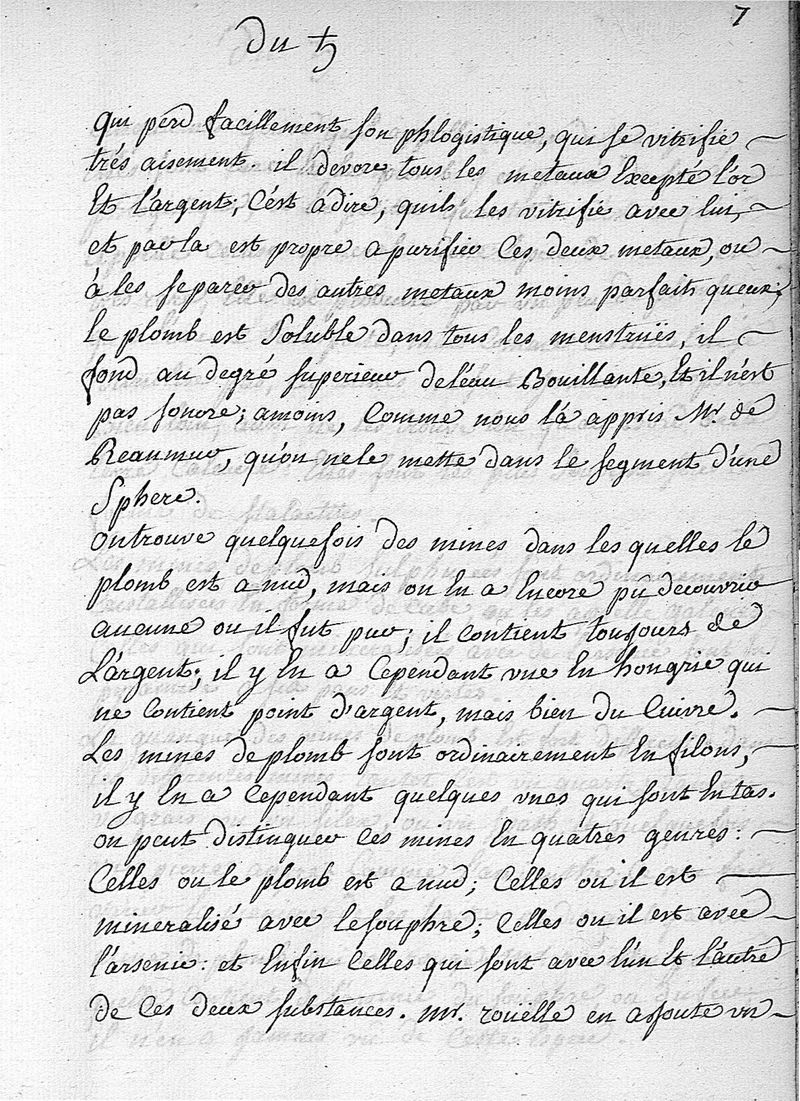 7
du ♄
qui perd facillement son phlogistique, qui se vitrifie
trés aisement. il devore tous les metaux Excepté l'or
Et l'argent; C'ést adire, quils les vitrifie avec lui,
et par la est propre apurifier Ces deux metaux, ou
à les separer des autres metaux moins parfaits queux;
le plomb est Soluble dans tous les menstruës, il
fond au degré superieur del'éau Bouillante, Et il n'ést
pas sonore; amoins, Comme nous l'a appris Mr de
Reaumur, qu'on nele mette dans le segment d'une
Sphere.
on trouve quelquefois des mines dans les quelles le
plomb est anud, mais on En a Encore pû decouvrir
aucune ou il fut pur; il Contient toujours de
L'argent; il y En a Cependant vne En hongrie qui
ne Contient point d'argent, mais bien du Cuivre.
Les mines de plomb sont ordinairement En filons,
il y En a Cependant quelques vnes qui sont En tas.
on peut distinguer Ces mines En quatres genres:
Celles ou le plomb est anud; Celles ou il est
mineralisé avec le souphre; Celles ou il est avec
l'arsenic: et Enfin Celles qui sont avec l'un Et l'autre
de Ces deux substances. Mr. rouelle en ajoute vn